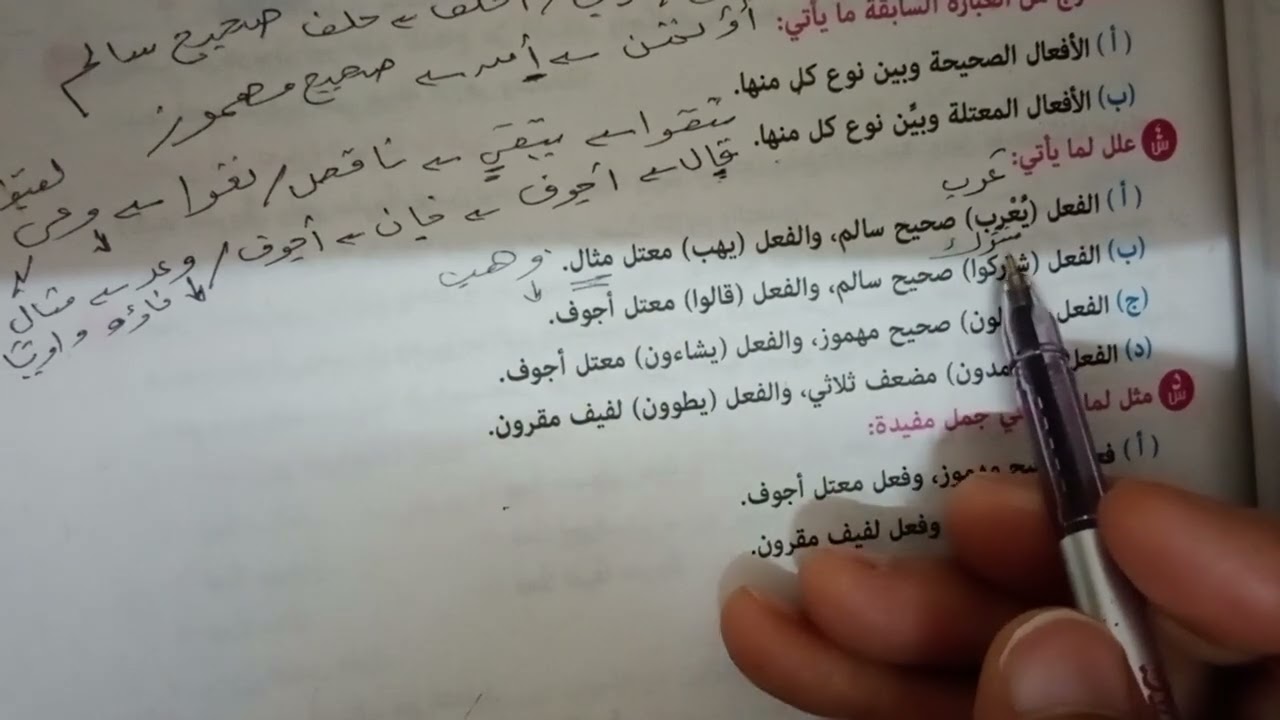 حلف صحيح سالم
أؤتمن أمن صحيح مهموز
العبارة السابقة ما يأتي:
(أ) الأفعال الصحيحة وبين نوع كل منها.
(ب) الأفعال المعتلة وبيَّن نوع كل منها.
يتقي ناقص /
قال أجوف خان أجوف / وعد مثال
فاؤه واو
ش علل لما يأتي:
عرب
(أ) الفعل (يُعْرِب) صحيح سالم، والفعل (يهب) معتل مثال.
وهب
(ب) الفعل (شاركوا) صحيح سالم، والفعل (قالوا) معتل أجوف.
(ج) الفعل لون) صحيح مهموز، والفعل (يشاءون) معتل أجوف.
(د) الفعل مدون) مضعف ثلاثي، والفعل (يطوون) لفيف مقرون.
مثل لما في جمل مفيدة:
(أ) مهموز، وفعل معتل أجوف.
وفعل لفيف مقرون.